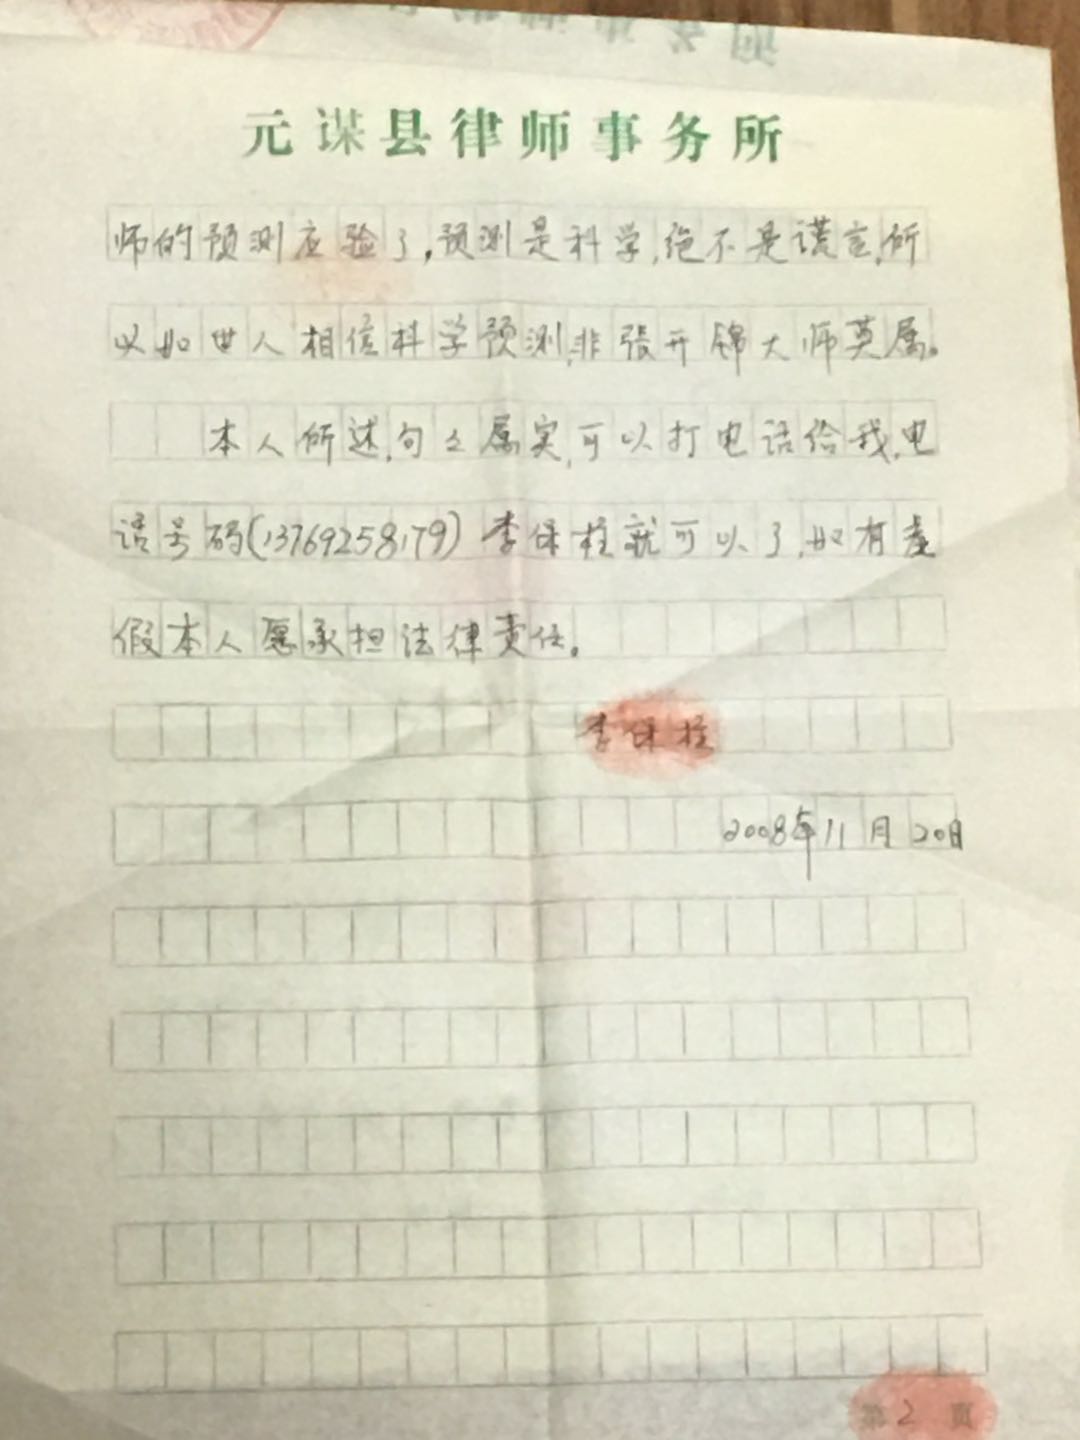 元谋县律师事务所
师的预测应验了,预测是科学,绝不是谎言,所
以如世人相信科学预测,非张开锦大师莫属。
本人所述,句句属实,可以打电话给我,电
话号码(13769258179)李保柱就可以了,如有虚
假本人愿承担法律责任。
李保柱
2008年11月20日
第2页